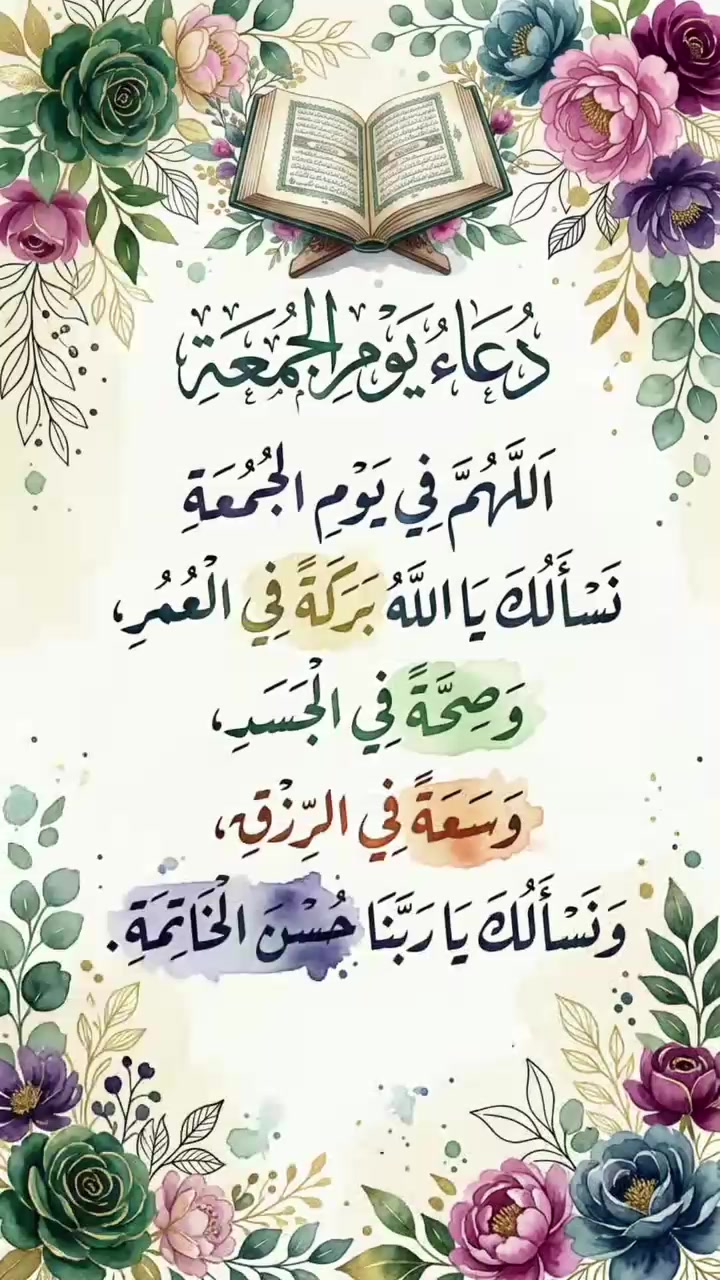 دُعَاءُ يَوْمِ الْجُمُعَةِ
اَللَّهُمَّ فِي يَوْمِ الْجُمُعَةِ
نَسْأَلُكَ يَا اللَّهُ بَرَكَةً فِي الْعُمُرِ،
وَصِحَّةً فِي الْجَسَدِ،
وَسَعَةً فِي الرِّزْقِ،
وَنَسْأَلُكَ يَا رَبَّنَا حُسْنَ الْخَاتِمَةِ.